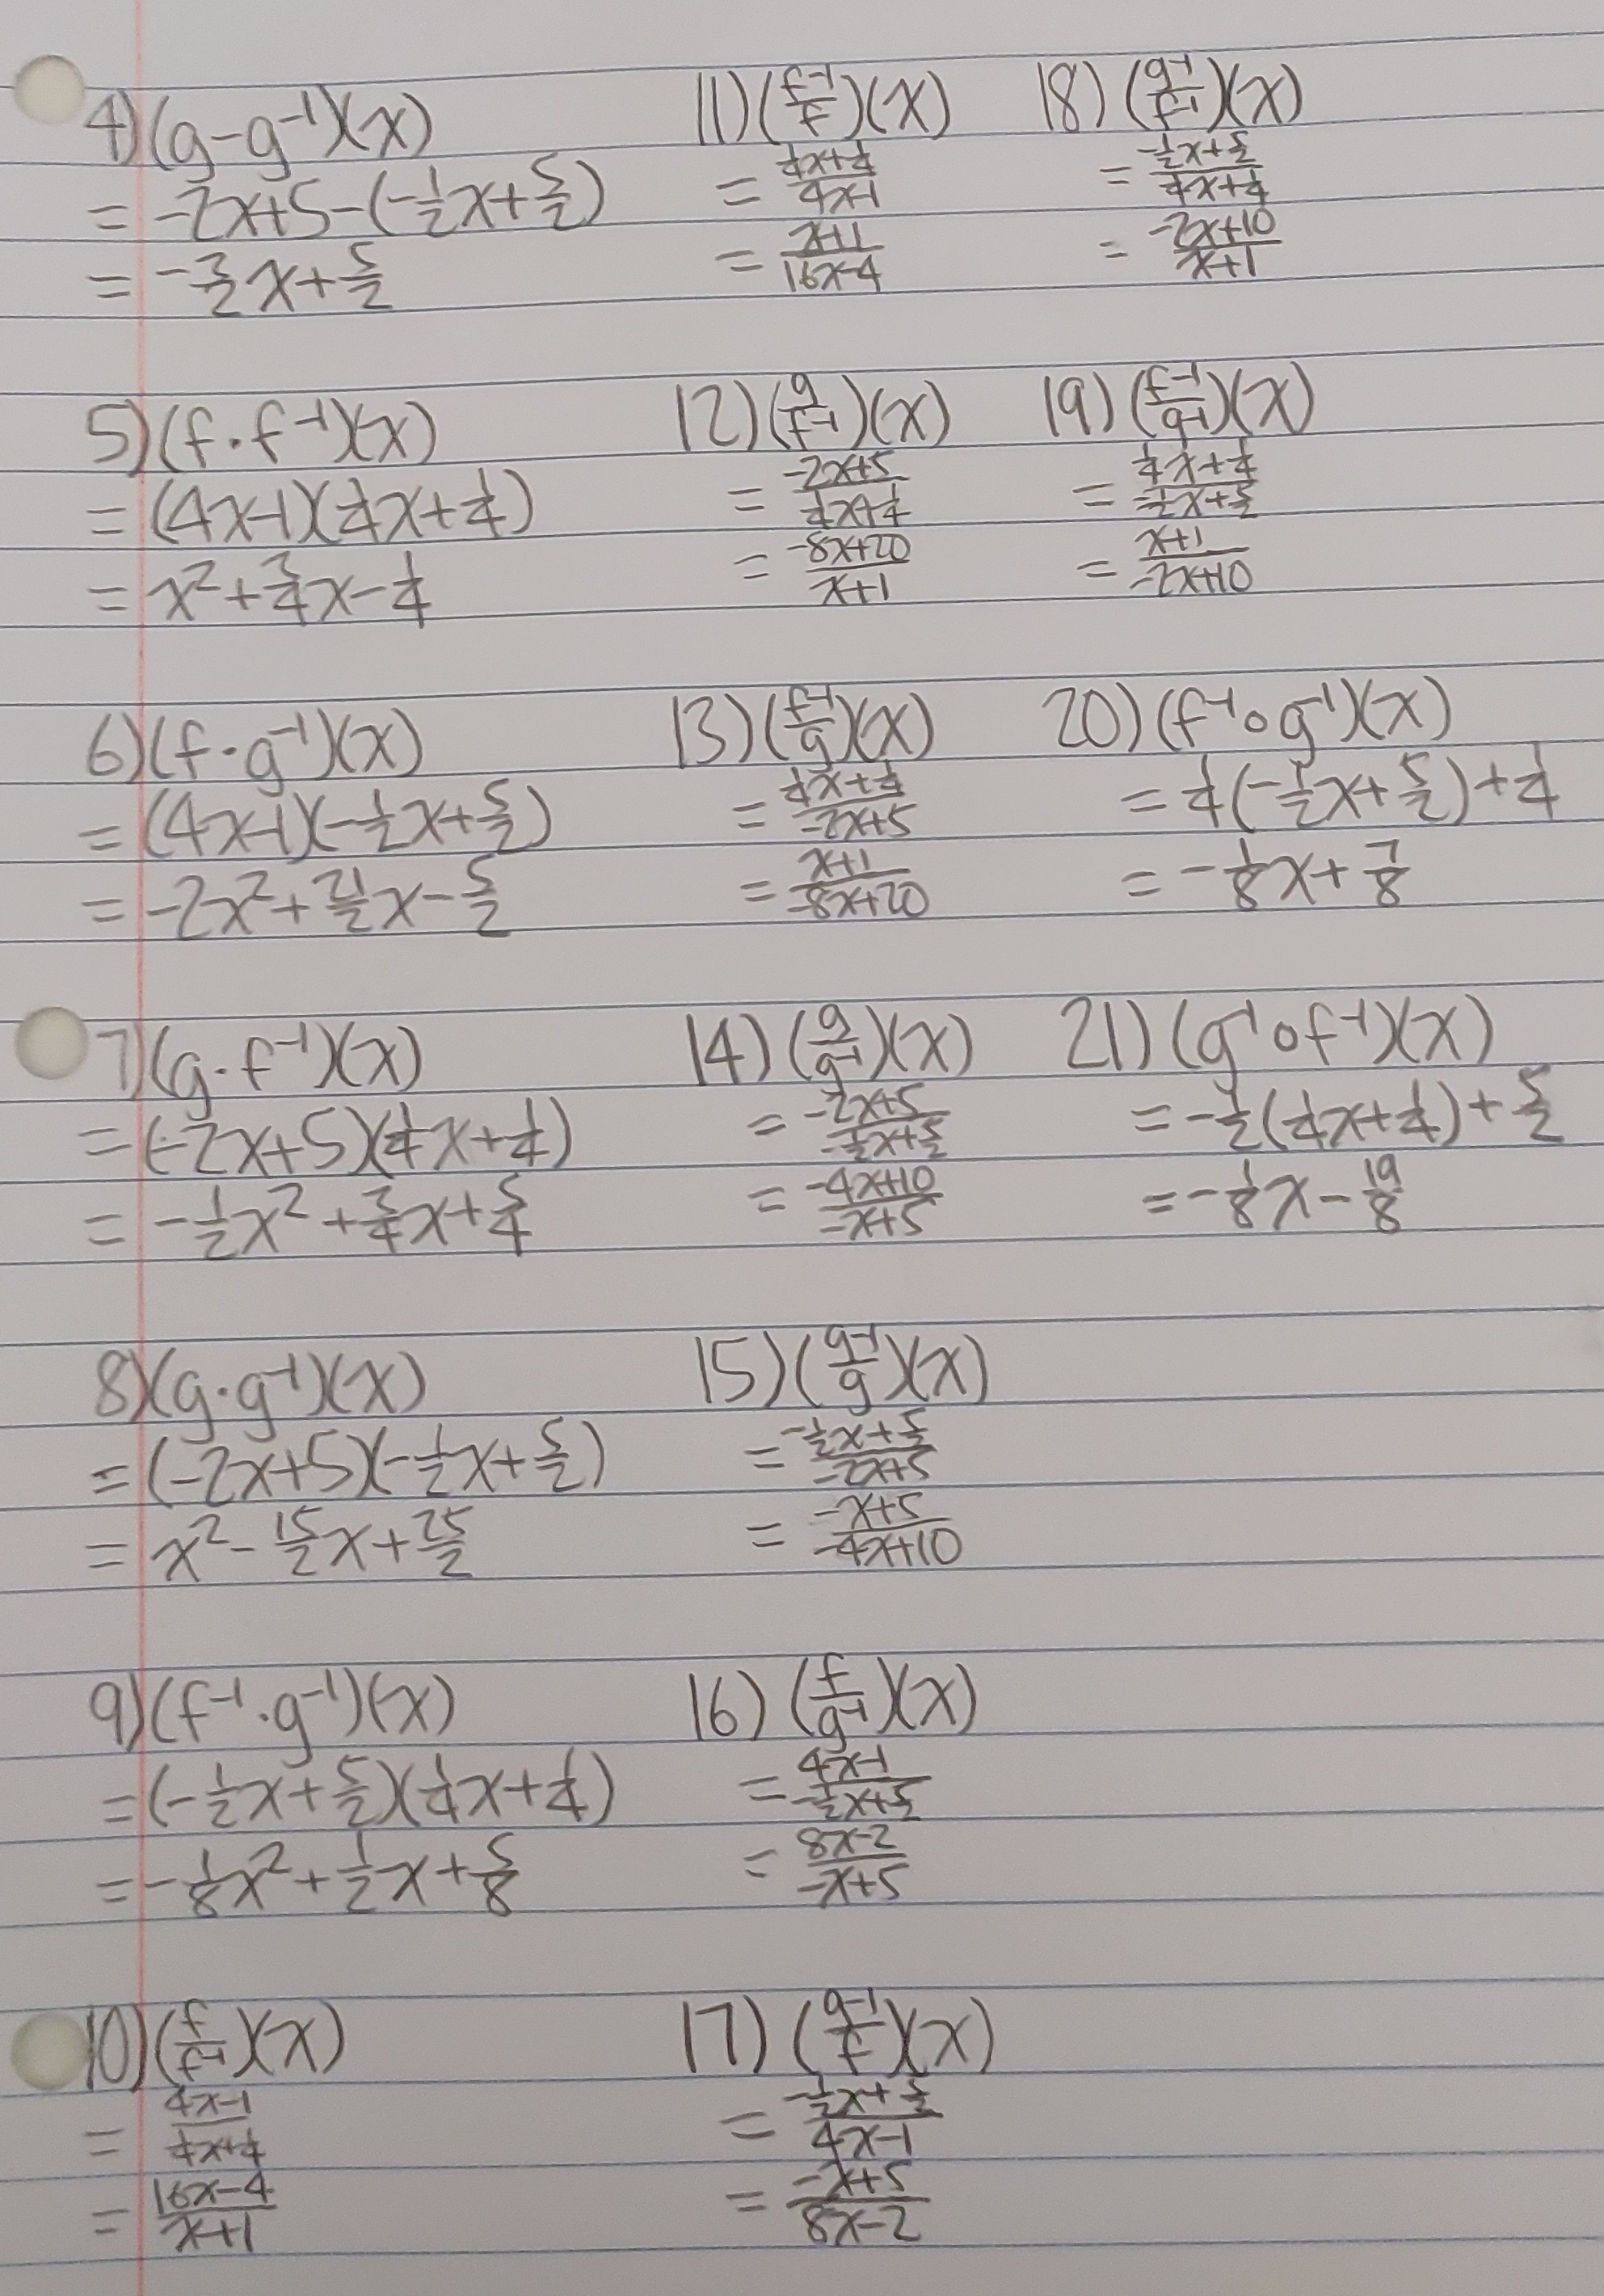 4) (g-g⁻¹)(x)
= -2x+5-(-1/2x+5/2)
= -3/2x+5/2
5) (f·f⁻¹)(x)
= (4x-1)(1/4x+1/4)
= x²+3/4x-1/4
6) (f·g⁻¹)(x)
= (4x-1)(-1/2x+5/2)
= -2x²+21/2x-5/2
7) (g·f⁻¹)(x)
= (-2x+5)(1/4x+1/4)
= -1/2x²+3/4x+5/4
8) (g·g⁻¹)(x)
= (-2x+5)(-1/2x+5/2)
= x²-15/2x+25/2
9) (f⁻¹·g⁻¹)(x)
= (-1/2x+5/2)(1/4x+1/4)
= -1/8x²+1/2x+5/8
10) (f/f⁻¹)(x)
= (4x-1)/(1/4x+1/4)
= (16x-4)/(x+1)
11) (f⁻¹/f)(x)
= (1/4x+1/4)/(4x-1)
= (x+1)/(16x-4)
12) (g/f⁻¹)(x)
= (-2x+5)/(1/4x+1/4)
= (-8x+20)/(x+1)
13) (f⁻¹/g)(x)
= (1/4x+1/4)/(-2x+5)
= (x+1)/(-8x+20)
14) (g/g⁻¹)(x)
= (-2x+5)/(-1/2x+5/2)
= (-4x+10)/(-x+5)
15) (g⁻¹/g)(x)
= (-1/2x+5/2)/(-2x+5)
= (-x+5)/(-4x+10)
16) (f/g⁻¹)(x)
= (4x-1)/(-1/2x+5/2)
= (8x-2)/(-x+5)
17) (g⁻¹/f)(x)
= (-1/2x+5/2)/(4x-1)
= (-x+5)/(8x-2)
18) (g⁻¹/f⁻¹)(x)
= (-1/2x+5/2)/(1/4x+1/4)
= (-2x+10)/(x+1)
19) (f⁻¹/g⁻¹)(x)
= (1/4x+1/4)/(-1/2x+5/2)
= (x+1)/(-2x+10)
20) (f⁻¹∘g⁻¹)(x)
= 1/4(-1/2x+5/2)+1/4
= -1/8x+7/8
21) (g⁻¹∘f⁻¹)(x)
= -1/2(1/4x+1/4)+5/2
= -1/8x-19/8